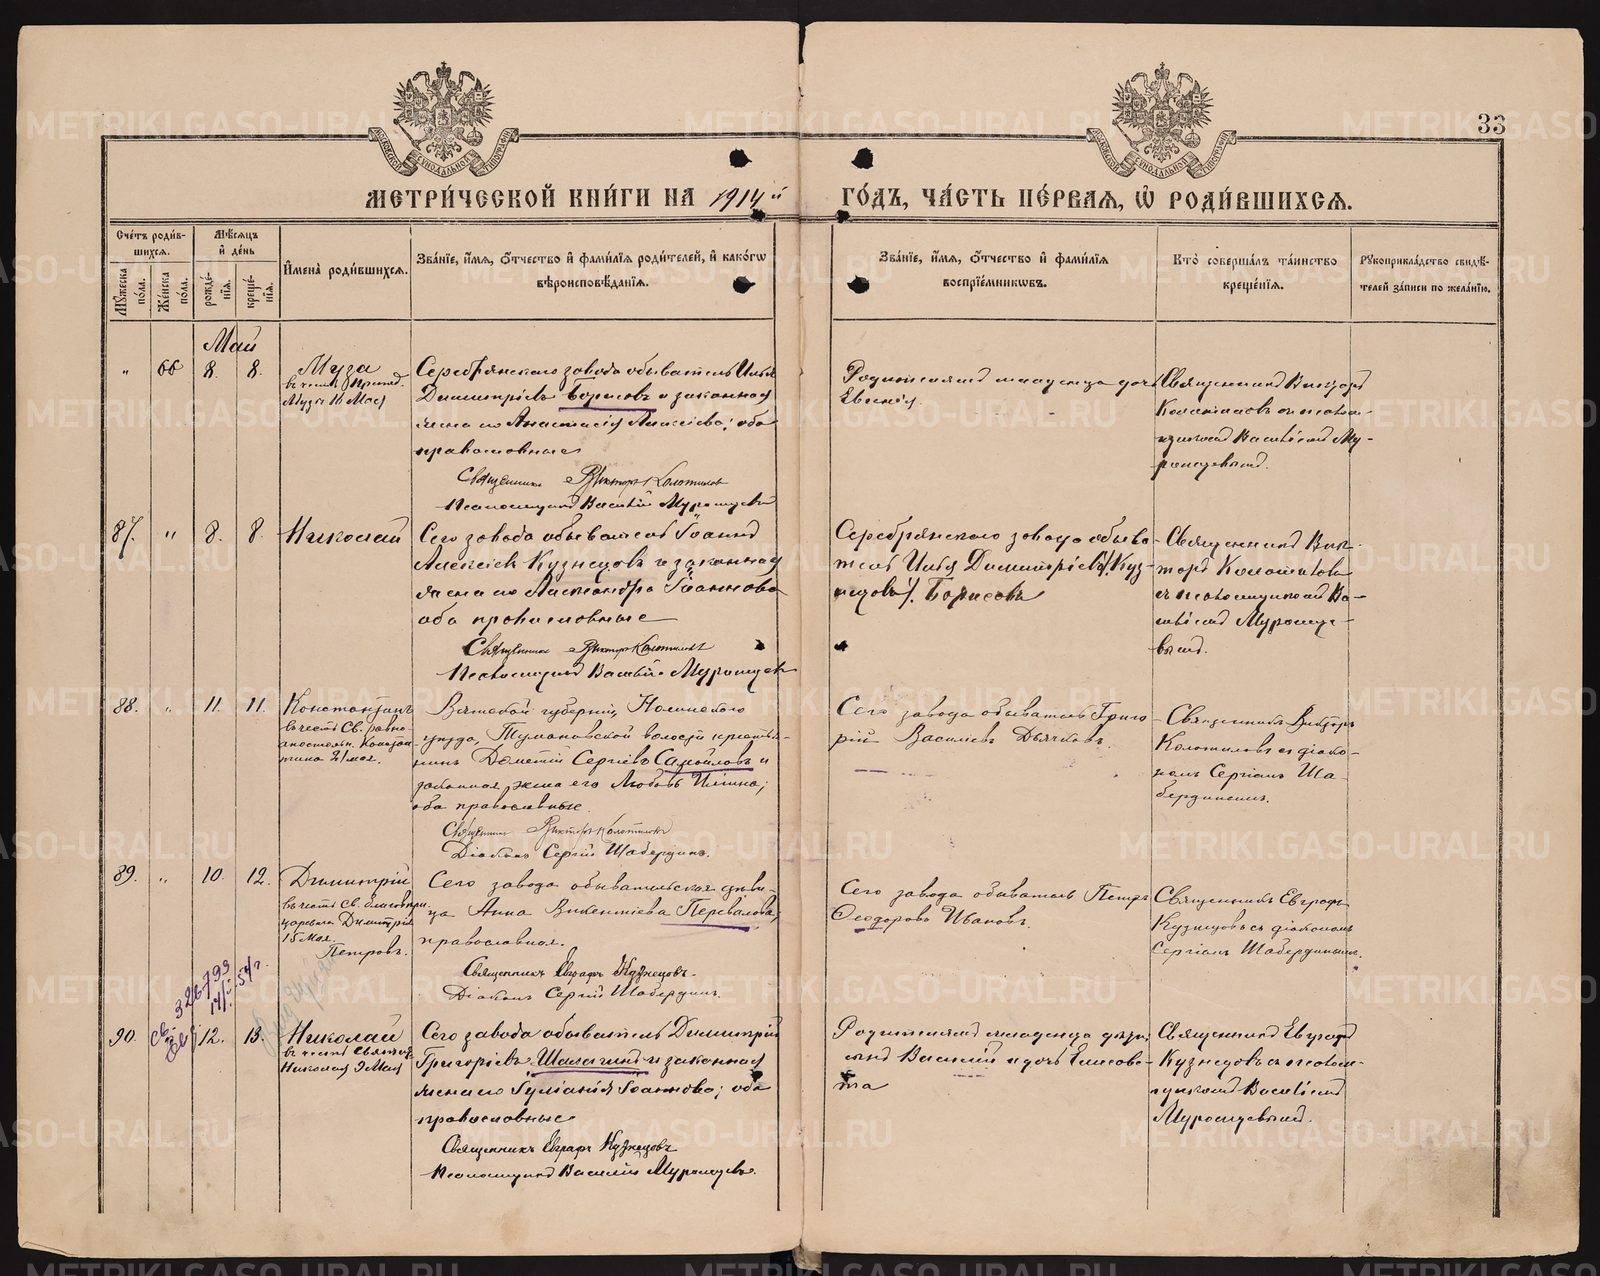 33
МЕТРИ́ЧЕСКОЙ КНИ́ГИ НА 1914й ГО́ДЪ, ЧА́СТЬ ПЕ́РВАѦ, Ѡ РОДИ́ВШИХСѦ.
Сче́тъ роди́в-
шихсѧ.
Мꙋ́жеска по́ла.
Же́нска по́ла.
Мѣ́сѧцъ
и҆ де́нь
рожде́-
нїѧ.
креще́-
нїѧ.
И҆мена̀ роди́вшихсѧ.
Зва́нїе, и҆́мѧ, ѻ҆́тчество и҆ фами́лїѧ роди́телей, и҆ како́гѡ
вѣроисповѣ́данїѧ.
Зва́нїе, и҆́мѧ, ѻ҆́тчество и҆ фами́лїѧ
воспрїе́мникѡвъ.
Кто̀ соверша́лъ та́инство
креще́нїѧ.
Рꙋкоприкла́дство свидѣ́-
телей за́писи по жела́нїю.
Май
„ 66 8. 8.
Муза
Серебрянскаго завода обыватель Илья
Димитріевъ Борисовъ и законная
жена его Анастасія Алексіева; оба
православные
Священникъ Викторъ Колотиловъ
Псаломщикъ Василій
Родителей младенца дочь
Евгенія.
Священникъ Викторъ
Колотиловъ съ псалом-
щикомъ Василіемъ
87. „ 8. 8.
Николай
Сего завода обыватель Іоаннъ
Алексіевъ Кузнецовъ и законная
жена его Александра Іоаннова
оба православные
Священникъ Викторъ Колотиловъ
Псаломщикъ Василій
Серебрянского завода обыва-
тель Илья Димитріевъ /. Куз-
нецовъ /. Борисовъ
Священникъ Вик-
торъ Колотиловъ
съ псаломщикомъ Ва-
силіемъ
88. „ 11. 11.
Константинъ
въ честь Св. равно-
апостольн. Констан-
тина 21 мая.
Вятской губерніи, Нолинскаго
уѣзда, Тумановской волости крестья-
нинъ Дометій Сергіевъ Самойловъ и
законная жена его Любовь Ильина;
оба православные.
Священникъ Викторъ Колотиловъ
Діаконъ Сергій Шабердинъ.
Сего завода обыватель Григо-
рій Василіевъ Дьячковъ.
Священникъ Викторъ
Колотиловъ съ діако-
номъ Сергіемъ Ша-
бердинымъ.
89. „ 10. 12.
Димитрій
въ честь Св. благовѣрн.
царевича Димитрія
15 Мая.
Петровъ.
Сего завода обывательская дѣви-
ца Анна Викентіева Перевалова,
православная.
Священникъ Евграфъ Кузнецовъ.
Діаконъ Сергій Шабердинъ.
Сего завода обыватель Петръ
Ѳеодоровъ Ивановъ.
Священникъ Евграфъ
Кузнецовъ съ діакономъ
Сергіемъ Шабердинымъ.
90. 12. 13.
Николай
въ честь Святит.
Николая 9 Мая
Сего завода обыватель Димитрій
Григоріевъ Шалагинъ и законная
жена его Іуліанія Іоаннова; оба
православные
Священникъ Евграфъ Кузнецовъ
Псаломщикъ Василій
Василій и дочь Елисаве-
та
Священникъ Евграфъ
Кузнецовъ съ псалом-
щикомъ Василіемъ
METRIKI.GASO-URAL.RU